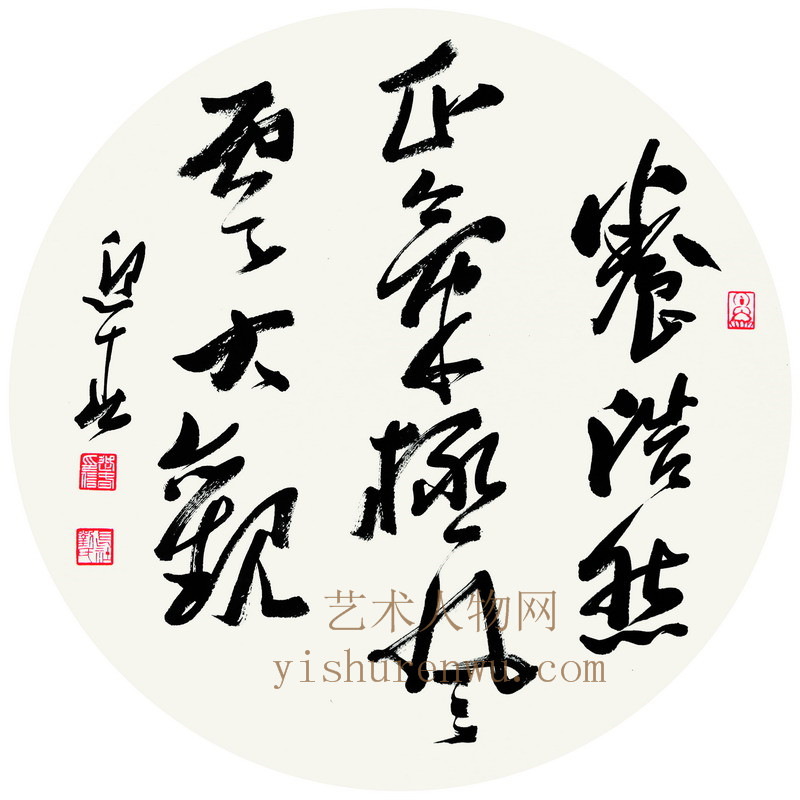 養浩然
正氣極風
雲大觀
艺术人物网
yishurenwu.com